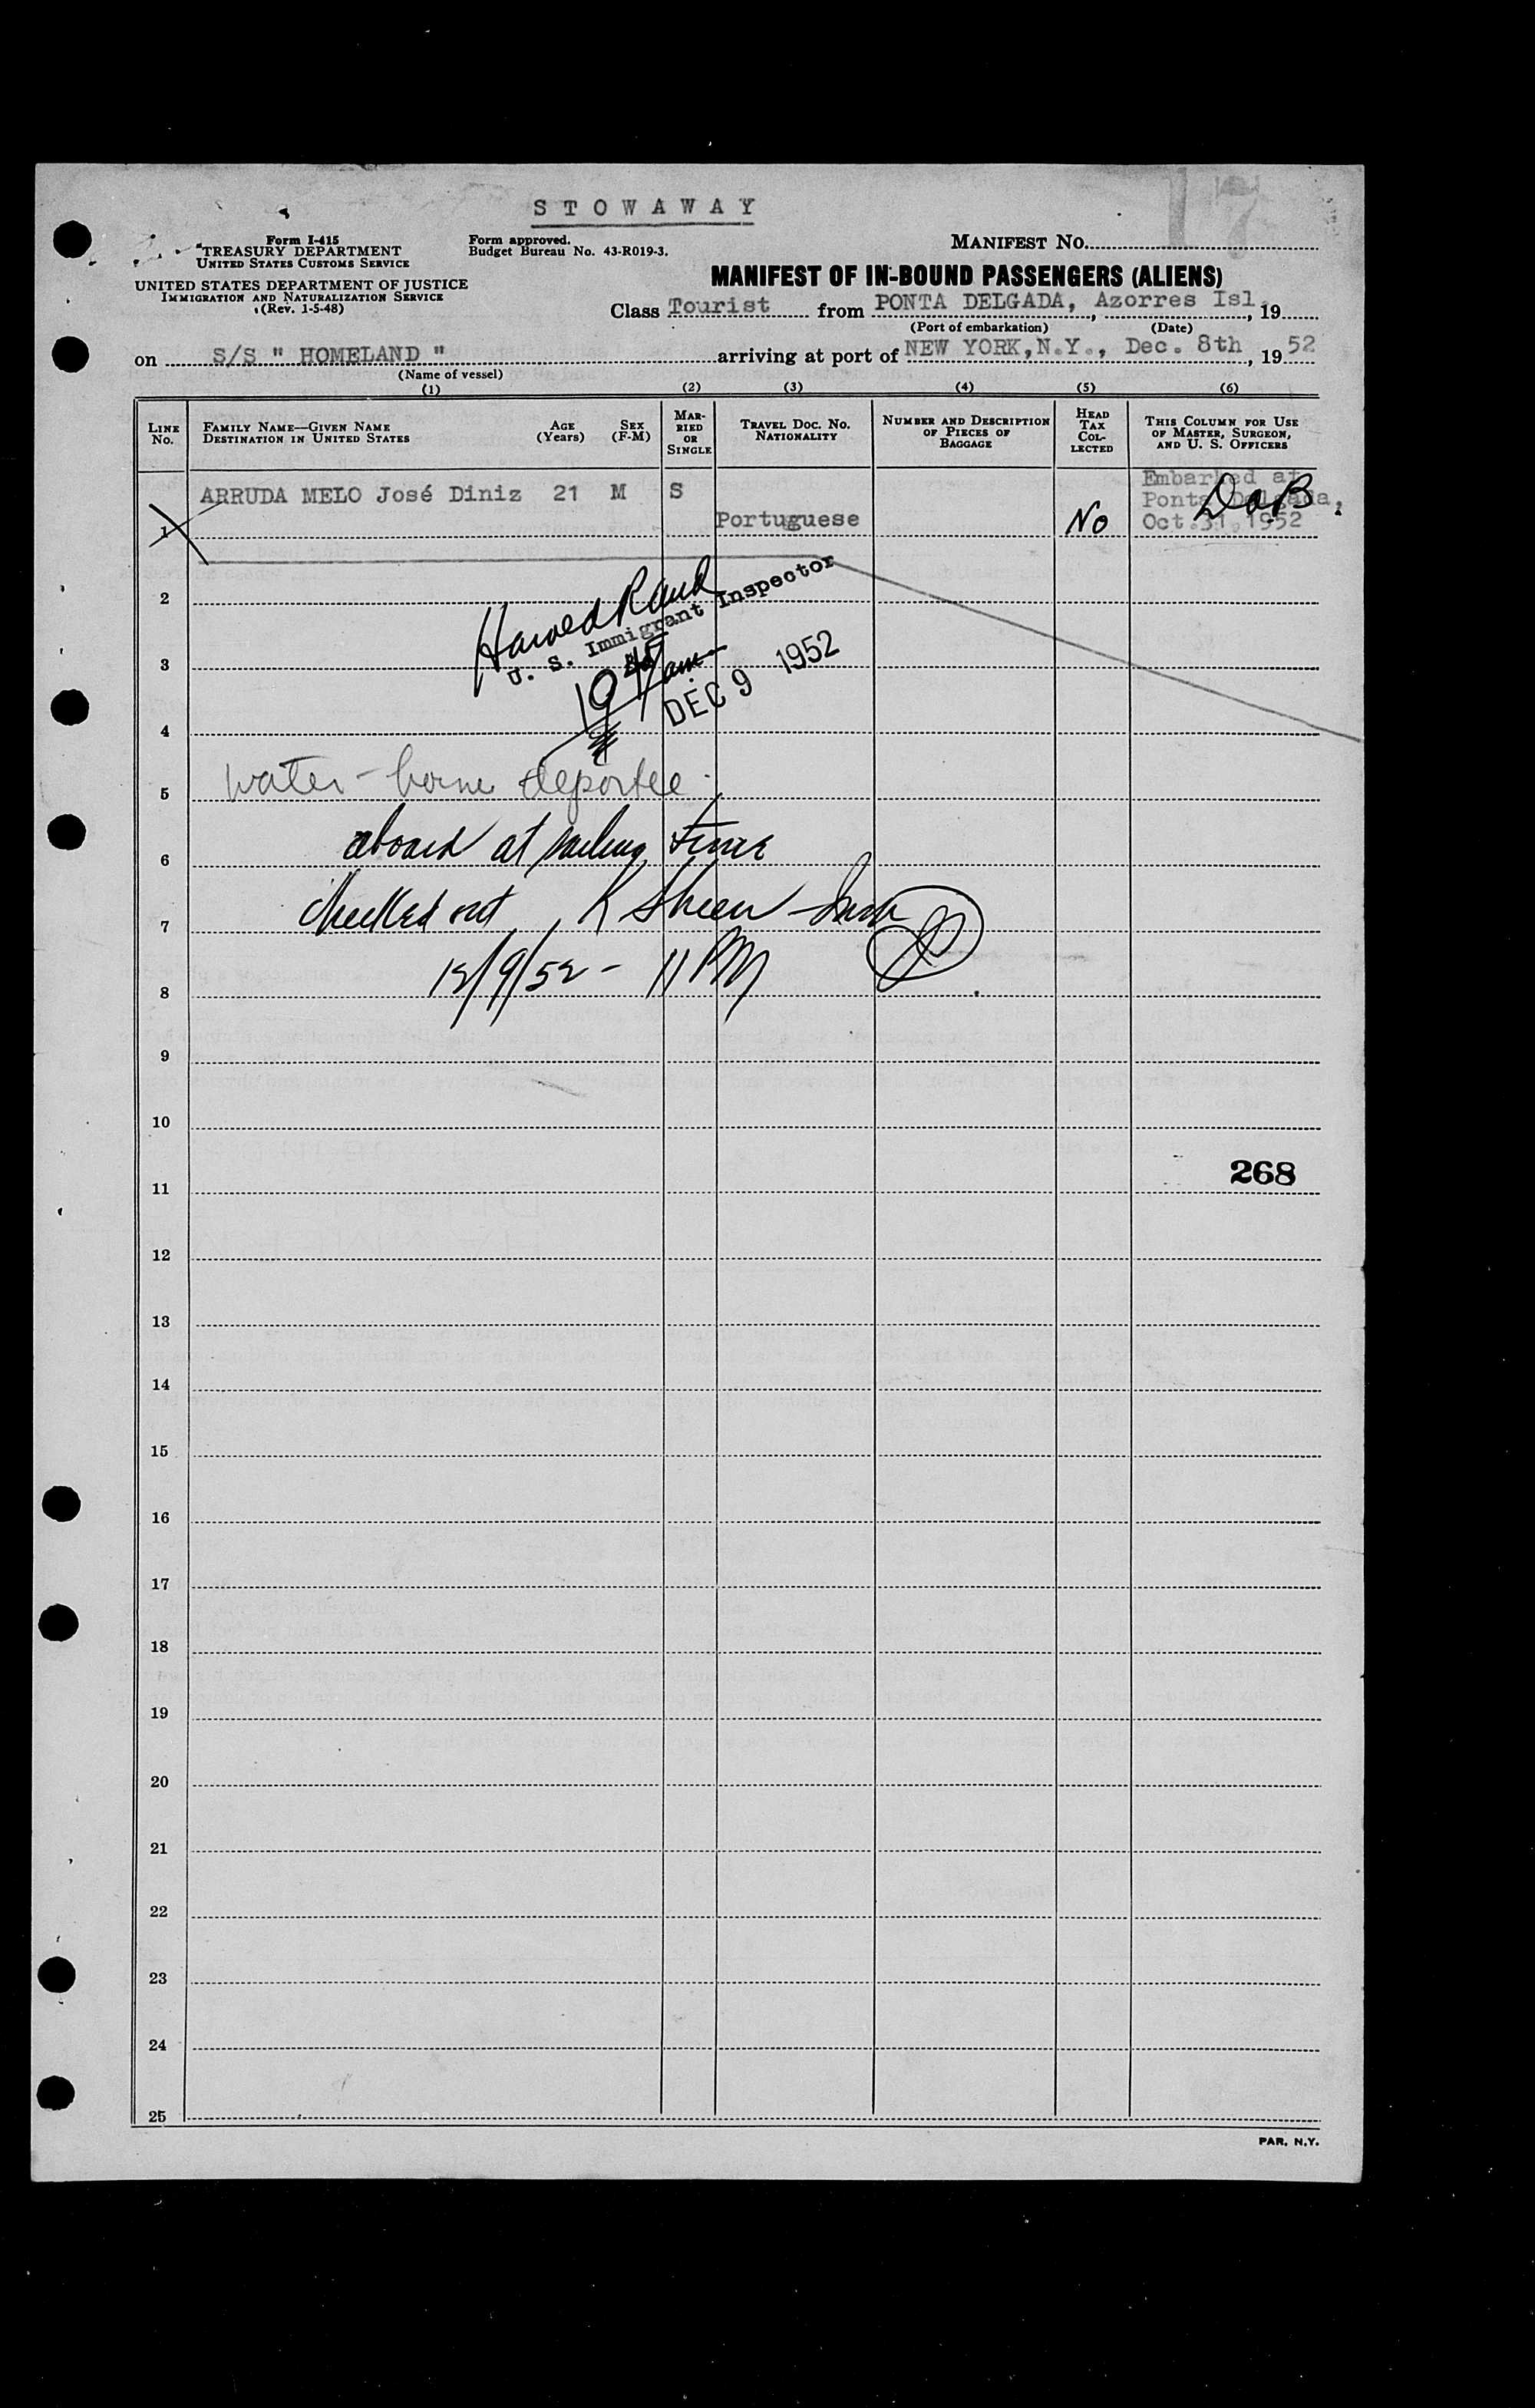 17
STOWAWAY
Form I-415
TREASURY DEPARTMENT
UNITED STATES CUSTOMS SERVICE
UNITED STATES DEPARTMENT OF JUSTICE
IMMIGRATION AND NATURALIZATION SERVICE
(Rev. 1-5-48)
Form approved.
Budget Bureau No. 43-R019-3.
MANIFEST NO.
MANIFEST OF IN-BOUND PASSENGERS (ALIENS)
Class Tourist from PONTA DELGADA, Azorres Isl, 19
(Port of embarkation) (Date)
on S/S " HOMELAND " arriving at port of NEW YORK, N.Y., Dec. 8th, 1952
(Name of vessel)
(1) (2) (3) (4) (5) (6)
LINE NO.
FAMILY NAME—GIVEN NAME
DESTINATION IN UNITED STATES
AGE (Years)
SEX (F-M)
MARRIED OR SINGLE
TRAVEL DOC. NO.
NATIONALITY
NUMBER AND DESCRIPTION OF PIECES OF BAGGAGE
HEAD TAX COLLECTED
THIS COLUMN FOR USE OF MASTER, SURGEON, AND U. S. OFFICERS
1 ARRUDA MELO José Diniz 21 M S Portuguese No
Embarked at
Ponta Delgada,
Oct.31,1952
2
U. S. Immigrant Inspector
3
am
DEC 9 1952
4
5 water-borne deportee
6 aboard at sailing time
7 Checked out K Sheen
8 12/9/52 - 11 PM
9
10
11 268
12
13
14
15
16
17
18
19
20
21
22
23
24
25
PAR. N.Y.